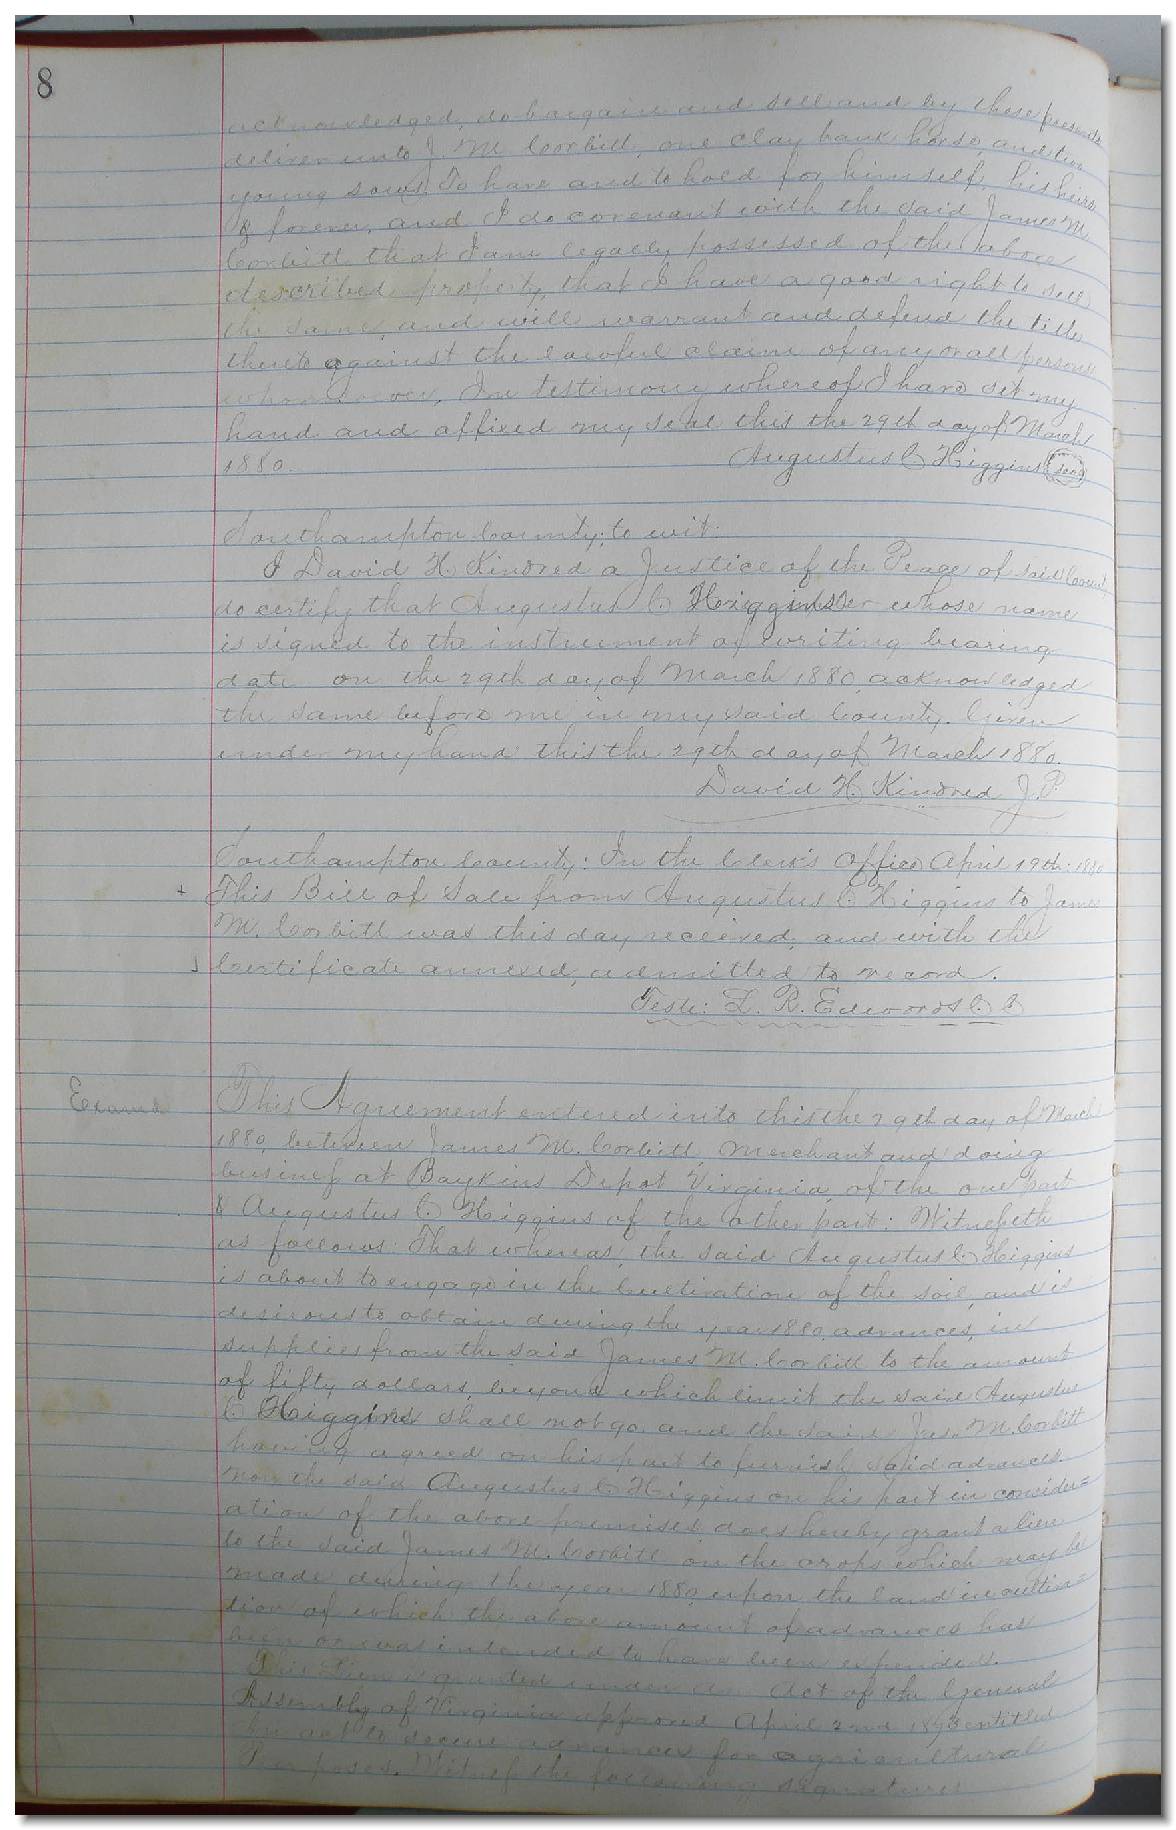 8
acknowledged, do bargain and sell and by these presents
deliver unto J. M. Corbitt, one clay bank horse, and two
young sows, To have and to hold for himself, his heirs
& forever, and I do covenant with the said James M
Corbitt that I am legally possessed of the above
described property, that I have a good right to sell
the same, and will warrant and defend the title
thereto against the lawful claims of any or all persons
whomsoever. In testimony whereof I have set my
hand and affixed my seal this the 29th day of March
1880. Augustus C Higgins Seal
Southampton County; to wit:
I David H. Kindred a Justice of the Peace of said County
do certify that Augustus C. Higgins whose name
is signed to the instrument of writing bearing
date on the 29th day of March 1880 acknowledged
the same before me in my said County. Given
under my hand this the 29th day of March 1880.
David H. Kindred J.P.
Southampton County: In the Clerk's Office April 19th: 1880
This Bill of Sale from Augustus C Higgins to James
M. Corbitt was this day received, and with the
Certificate annexed, admitted to record.
Teste: L. R. Edwards C. C
Examd
This Agreement entered into this the 29th day of March
1880, between James M. Corbitt, Merchant and doing
businefs at Boykins Depot Virginia, of the one part
& Augustus C. Higgins of the other part: Witnefseth
as follows: That whereas, the said Augustus C Higgins
is about to engage in the Cultivation of the soil, and is
desirous to obtain during the year 1880, advances, in
supplies from the said James M. Corbitt to the amount
of fifty dollars, beyond which limit the said Augustus
C. Higgins shall not go, and the said Jas. M. Corbitt
having agreed on his part to furnish said advances.
Now the said Augustus C Higgins on his part in consider=
ation of the above premises does hereby grant a lien
to the said James M. Corbitt on the crops which may be
made during the year 1880, upon the land in cultiva=
tion of which the above amount of advances has
been or was intended to have been expended.
This lien is granted under an Act of the General
Assembly of Virginia approved April 2nd 1873 entitled
An act to secure advances for agricultural
Purposes. Witnefs the following signatures